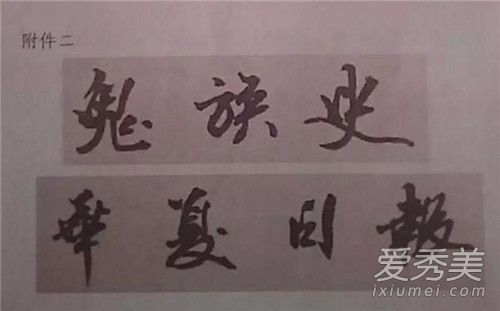 附件二
鬼族史
華夏日報
爱秀美
ixiumei.com